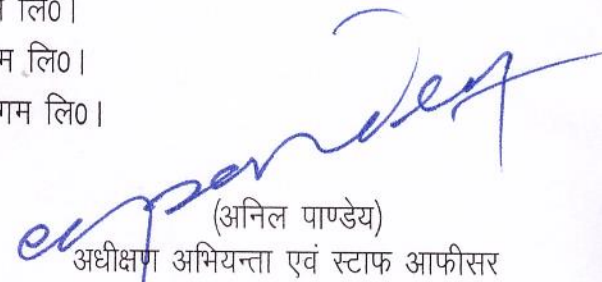 लि0।
लि0।
लि0।
(अनिल पाण्डेय)
अधीक्षण अभियन्ता एवं स्टाफ आफीसर